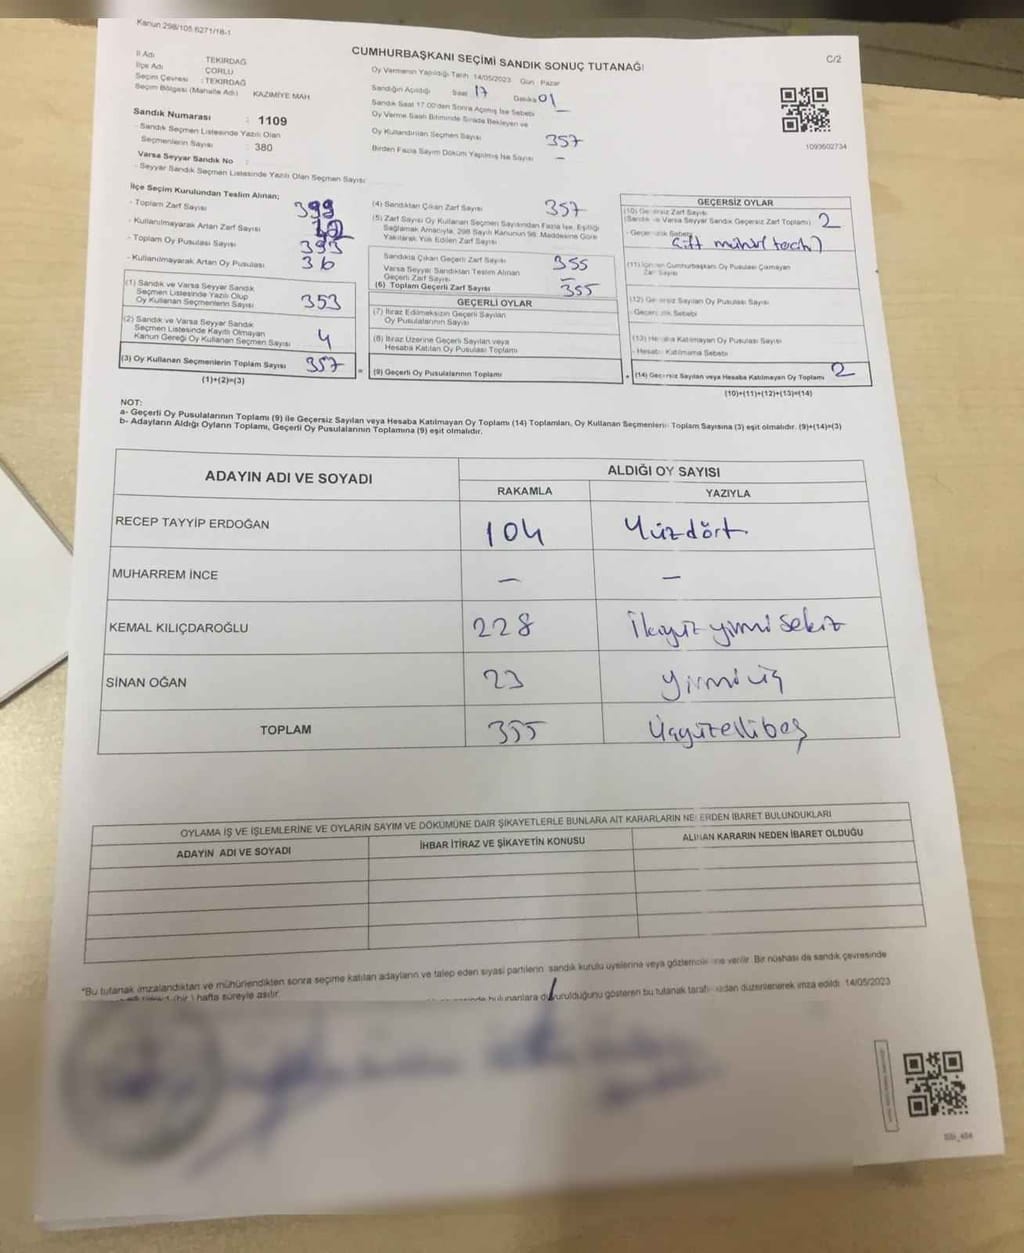 Kanun 298/105 6271/18-1
CUMHURBAŞKANI SEÇİMİ SANDIK SONUÇ TUTANAĞI
C/2
İl Adı TEKİRDAĞ
İlçe Adı ÇORLU
Seçim Çevresi : TEKİRDAĞ
Seçim Bölgesi (Mahalle Adı) KAZIMİYE MAH
Sandık Numarası : 1109
- Sandık Seçmen Listesinde Yazılı Olan
Seçmenlerin Sayısı : 380
Varsa Seyyar Sandık No :
- Seyyar Sandık Seçmen Listesinde Yazılı Olan Seçmen Sayısı
Oy Vermenin Yapıldığı Tarih 14/05/2023 Gün : Pazar
Sandığın Açıldığı Saat 17 Dakika 01
Sandık Saat 17.00'den Sonra Açılmış İse Sebebi
Oy Verme Saati Bitiminde Sırada Bekleyen ve
Oy Kullandırılan Seçmen Sayısı 357
Birden Fazla Sayım Döküm Yapılmış İse Sayısı –
1093602734
İlçe Seçim Kurulundan Teslim Alınan;
- Toplam Zarf Sayısı 399
- Kullanılmayarak Artan Zarf Sayısı
- Toplam Oy Pusulası Sayısı 393
- Kullanılmayarak Artan Oy Pusulası 36
(1) Sandık ve Varsa Seyyar Sandık
Seçmen Listesinde Yazılı Olup
Oy Kullanan Seçmenlerin Sayısı 353
(2) Sandık ve Varsa Seyyar Sandık
Seçmen Listesinde Kayıtlı Olmayan
Kanun Gereği Oy Kullanan Seçmen Sayısı 4
(3) Oy Kullanan Seçmenlerin Toplam Sayısı 357
(1)+(2)=(3)
(4) Sandıktan Çıkan Zarf Sayısı 357
(5) Zarf Sayısı Oy Kullanan Seçmen Sayısından Fazla İse, Eşitliği
Sağlamak Amacıyla, 298 Sayılı Kanunun 98. Maddesine Göre
Yakılarak Yok Edilen Zarf Sayısı
Sandıkta Çıkan Geçerli Zarf Sayısı 355
Varsa Seyyar Sandıktan Teslim Alınan
Geçerli Zarf Sayısı –
(6) Toplam Geçerli Zarf Sayısı 355
GEÇERLİ OYLAR
(7) İtiraz Edilmeksizin Geçerli Sayılan
Oy Pusulalarının Sayısı
(8) İtiraz Üzerine Geçerli Sayılan veya
Hesaba Katılan Oy Pusulası Toplamı
= (9) Geçerli Oy Pusulalarının Toplamı
GEÇERSİZ OYLAR
(10) Geçersiz Zarf Sayısı
(Sandık ve Varsa Seyyar Sandık Geçersiz Zarf Toplamı) 2
- Geçersizlik Sebebi Çift mühür
(11) İçinden Cumhurbaşkanı Oy Pusulası Çıkmayan
Zarf Sayısı
(12) Geçersiz Sayılan Oy Pusulası Sayısı
- Geçersizlik Sebebi
(13) Hesaba Katılmayan Oy Pusulası Sayısı
- Hesaba Katılmama Sebebi
+ (14) Geçersiz Sayılan veya Hesaba Katılmayan Oy Toplamı 2
(10)+(11)+(12)+(13)=(14)
NOT:
a- Geçerli Oy Pusulalarının Toplamı (9) ile Geçersiz Sayılan veya Hesaba Katılmayan Oy Toplamı (14) Toplamları, Oy Kullanan Seçmenlerin Toplam Sayısına (3) eşit olmalıdır. (9)+(14)=(3)
b- Adayların Aldığı Oyların Toplamı, Geçerli Oy Pusulalarının Toplamına (9) eşit olmalıdır.
ADAYIN ADI VE SOYADI ALDIĞI OY SAYISI
RAKAMLA YAZIYLA
RECEP TAYYİP ERDOĞAN 104 Yüzdört
MUHARREM İNCE – –
KEMAL KILIÇDAROĞLU 228 İkiyüz yirmi sekiz
SİNAN OĞAN 23 yirmi üç
TOPLAM 355 Üçyüzellibeş
OYLAMA İŞ VE İŞLEMLERİNE VE OYLARIN SAYIM VE DÖKÜMÜNE DAİR ŞİKAYETLERLE BUNLARA AİT KARARLARIN NELERDEN İBARET BULUNDUKLARI
ADAYIN ADI VE SOYADI İHBAR İTİRAZ VE ŞİKAYETİN KONUSU ALINAN KARARIN NEDEN İBARET OLDUĞU
*Bu tutanak imzalandıktan ve mühürlendikten sonra seçime katılan adayların ve talep eden siyasi partilerin sandık kurulu üyelerine veya gözlemcilerine verilir. Bir nüshası da sandık çevresinde
(bir) hafta süreyle asılır.
bulunanlara duyurulduğunu gösteren bu tutanak tarafımızdan düzenlenerek imza edildi. 14/05/2023